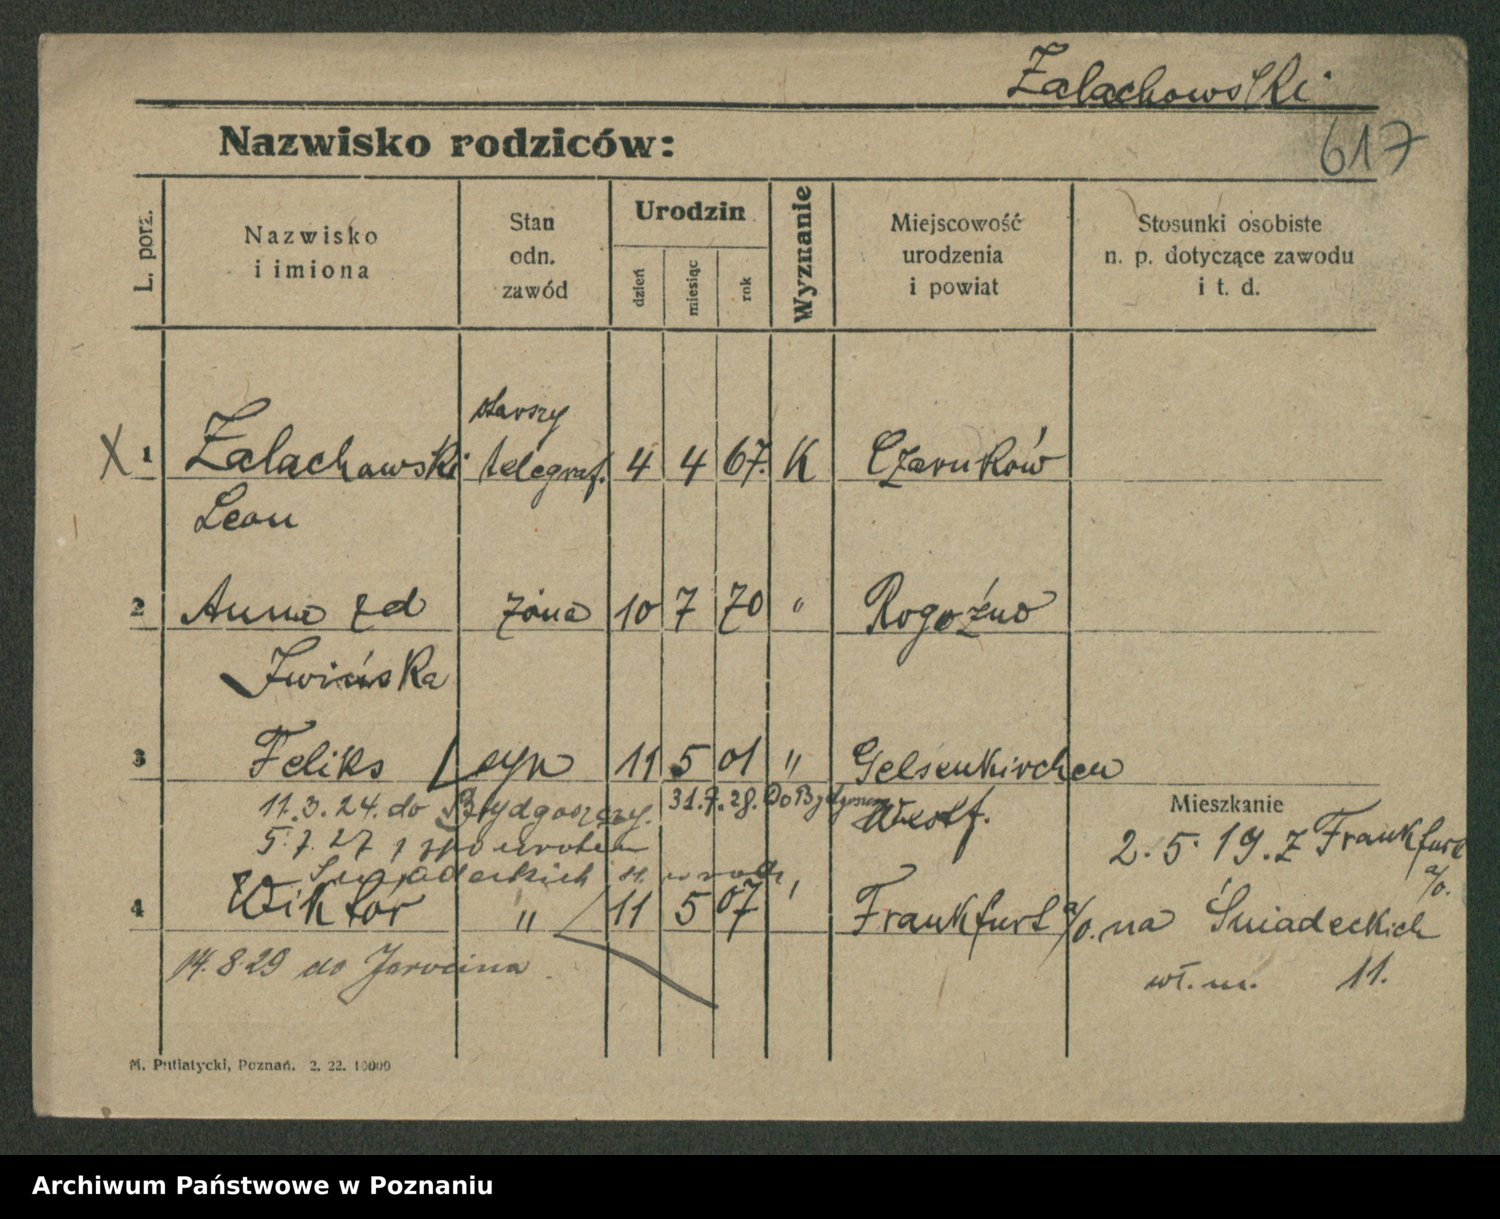 Zalachowski
617
Nazwisko rodziców:
L. porz.
Nazwisko
i imiona
Stan
odn.
zawód
Urodzin
dzień
miesiąc
rok
Wyznanie
Miejscowość
urodzenia
i powiat
Stosunki osobiste
n. p. dotyczące zawodu
i t. d.
starszy
X 1 Zalachowski telegraf. 4 4 67. K Czarnków
Leon
2 Anna zd żona 10 7 70 " Rogoźno
3 Feliks syn 11 5 01 " Gelsenkirchen
11.3.24. do Bydgoszczy. 31.7.28. Do Bydgoszczy Westf.
Mieszkanie
2.5.19. z Frankfurt
a/O.
5.7.27
Śniadeckich 11
4 Wiktor " 11 5 07 " Frankfurt a/O. na Śniadeckich
14.8.29 do Jarocina
wł. m. 11.
M. Putiatycki, Poznań. 2. 22. 10000
Archiwum Państwowe w Poznaniu